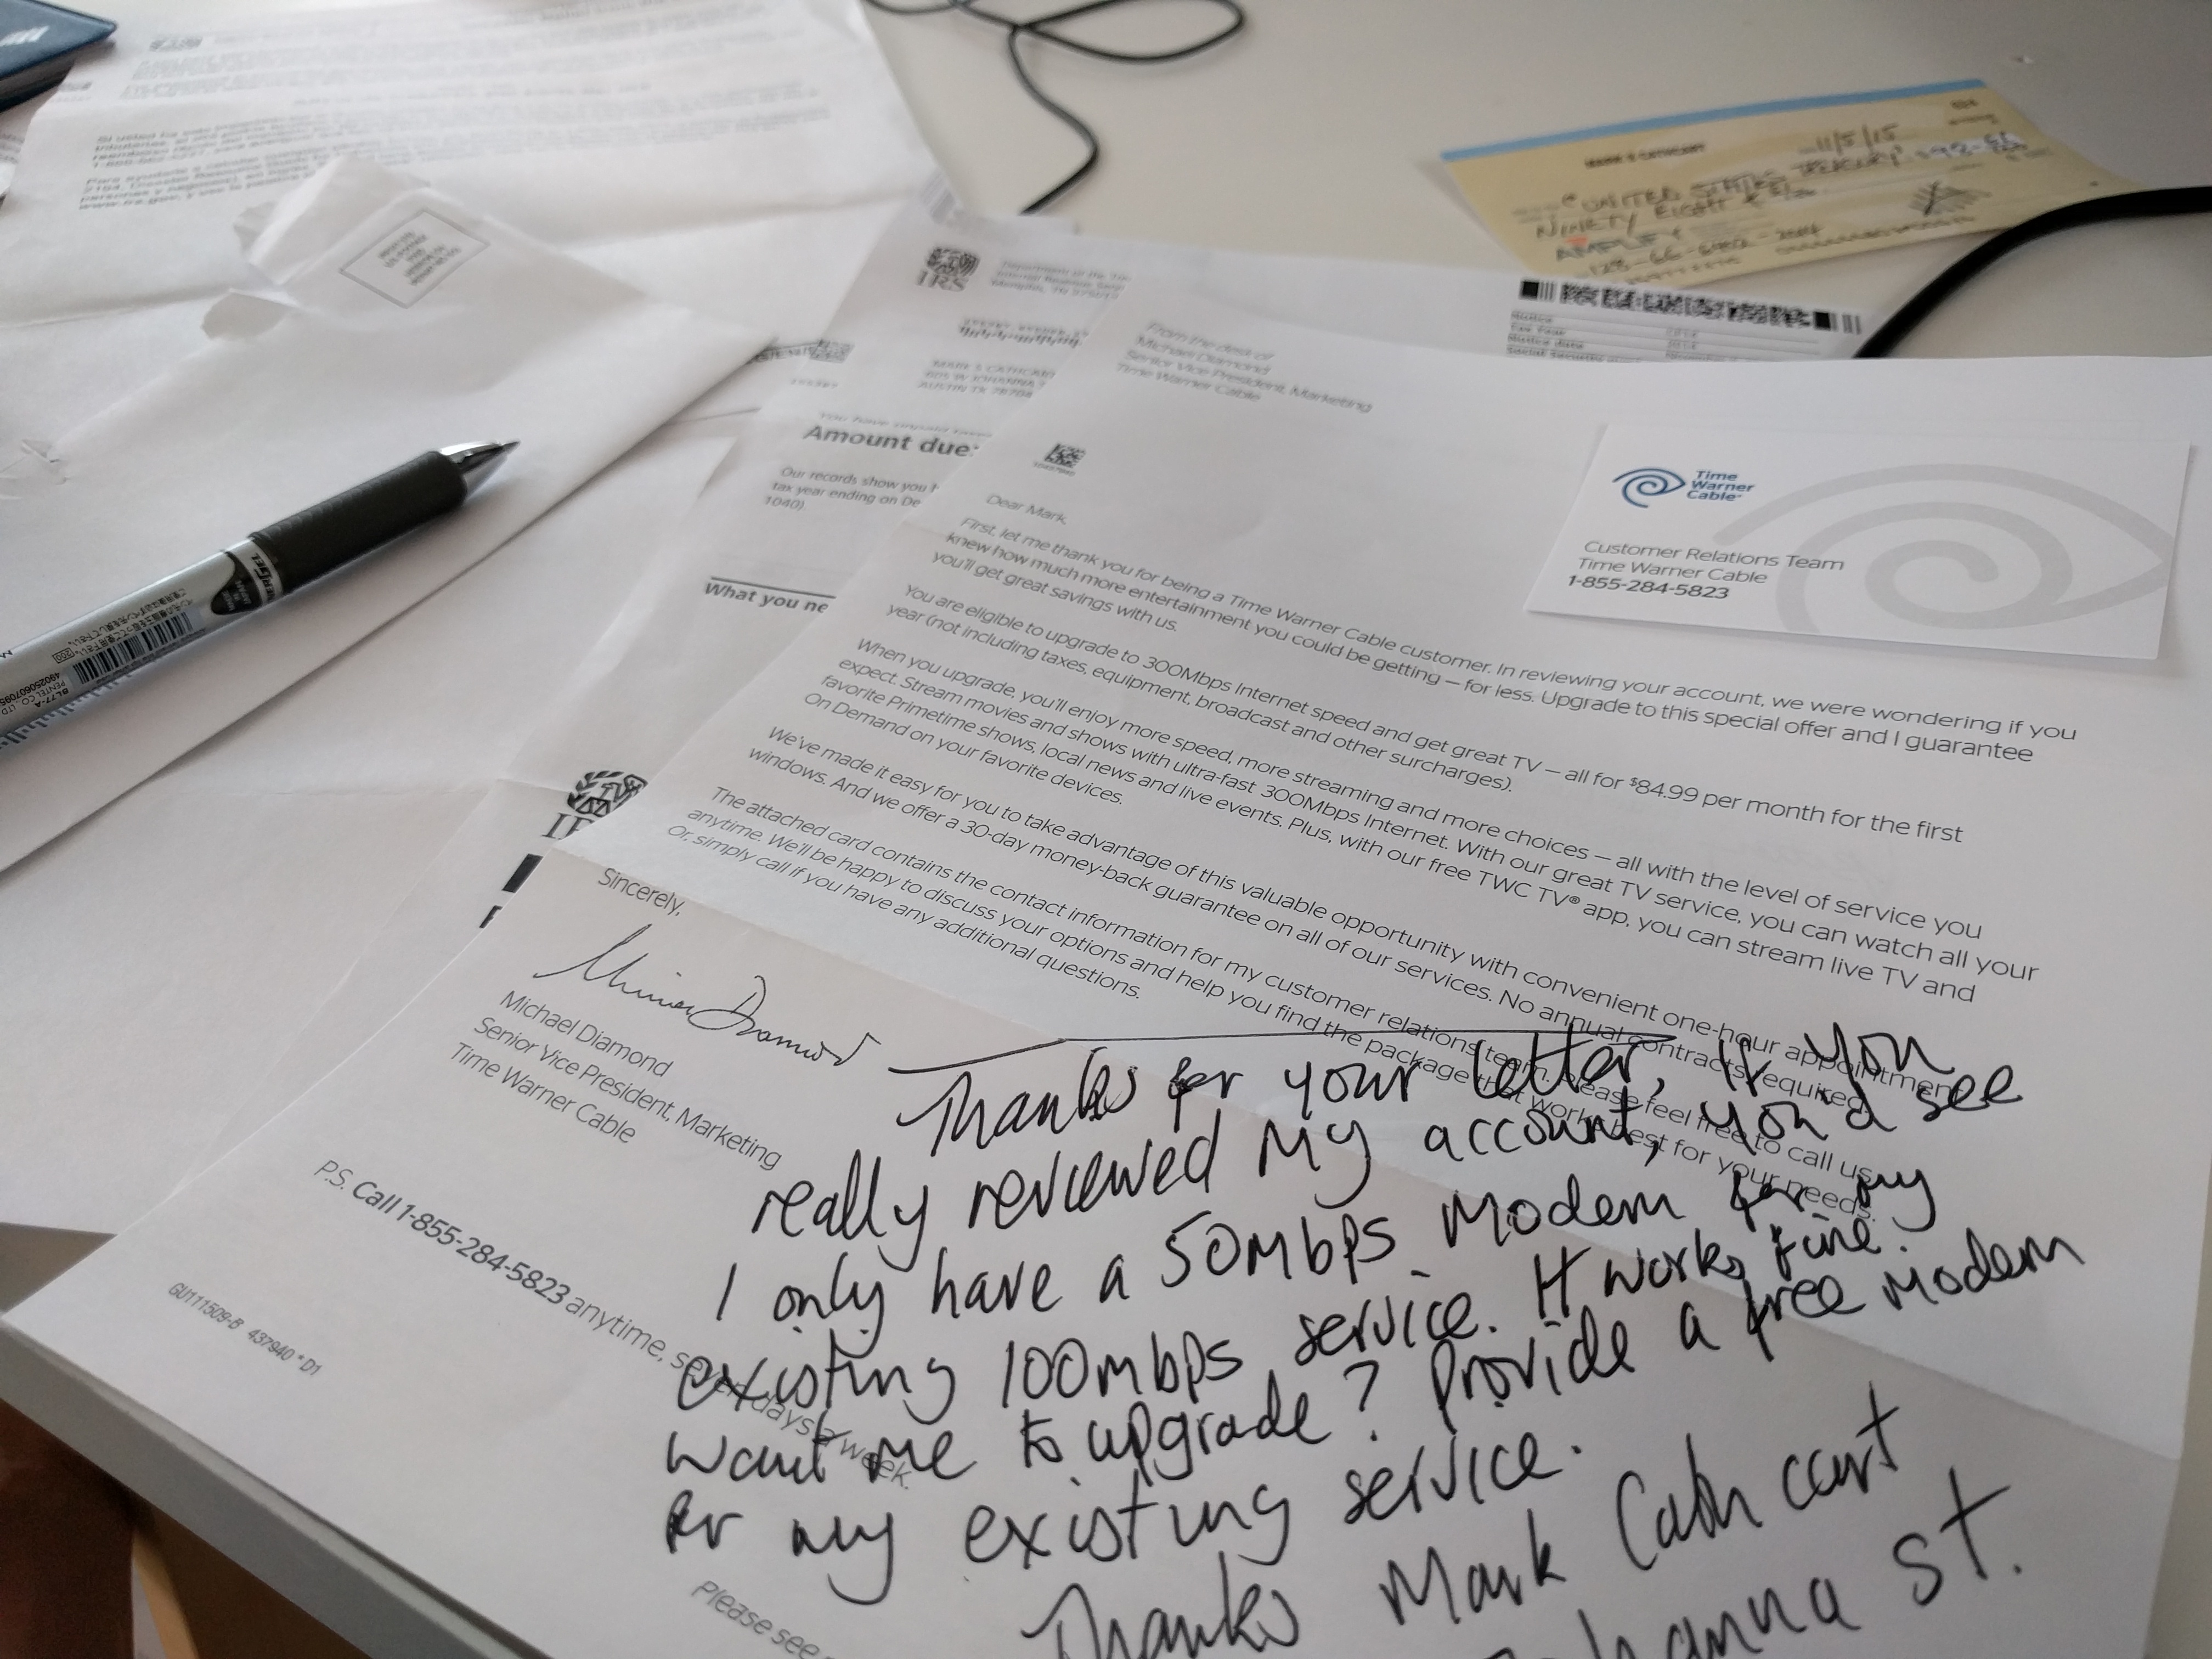 IRS
MARK S CATHCART
AUSTIN TX 78704
Amount due:
Our records show you h
tax year ending on De
1040)
What you ne
11/5/15
UNITED STATES TREASURY
NINETY EIGHT
From the desk of
Michael Diamond
Senior Vice President, Marketing
Time Warner Cable
Time
Warner
Cable
Customer Relations Team
Time Warner Cable
1-855-284-5823
Dear Mark,
First, let me thank you for being a Time Warner Cable customer. In reviewing your account, we were wondering if you
knew how much more entertainment you could be getting — for less. Upgrade to this special offer and I guarantee
you'll get great savings with us.
You are eligible to upgrade to 300Mbps Internet speed and get great TV — all for $84.99 per month for the first
year (not including taxes, equipment, broadcast and other surcharges).
When you upgrade, you'll enjoy more speed, more streaming and more choices — all with the level of service you
expect. Stream movies and shows with ultra-fast 300Mbps Internet. With our great TV service, you can watch all your
favorite Primetime shows, local news and live events. Plus, with our free TWC TV® app, you can stream live TV and
On Demand on your favorite devices.
We've made it easy for you to take advantage of this valuable opportunity with convenient one-hour appointment
windows. And we offer a 30-day money-back guarantee on all of our services. No annual contracts required.
The attached card contains the contact information for my customer relations team. Please feel free to call us
anytime. We'll be happy to discuss your options and help you find the package that works best for your needs.
Or, simply call if you have any additional questions.
Sincerely,
Michael Diamond
Senior Vice President, Marketing
Time Warner Cable
P.S. Call 1-855-284-5823 anytime, seven days a week.
GU111509-B 437940 * D1
Please see
Thanks for your letter, If you
really reviewed my account, you'd see
I only have a 50Mbps Modem for my
existing 100mbps service. It works fine.
want me to upgrade? Provide a free modem
for my existing service.
Thanks Mark Cathcart
hanna St.
BL77-A
PENTEL CO., LTD